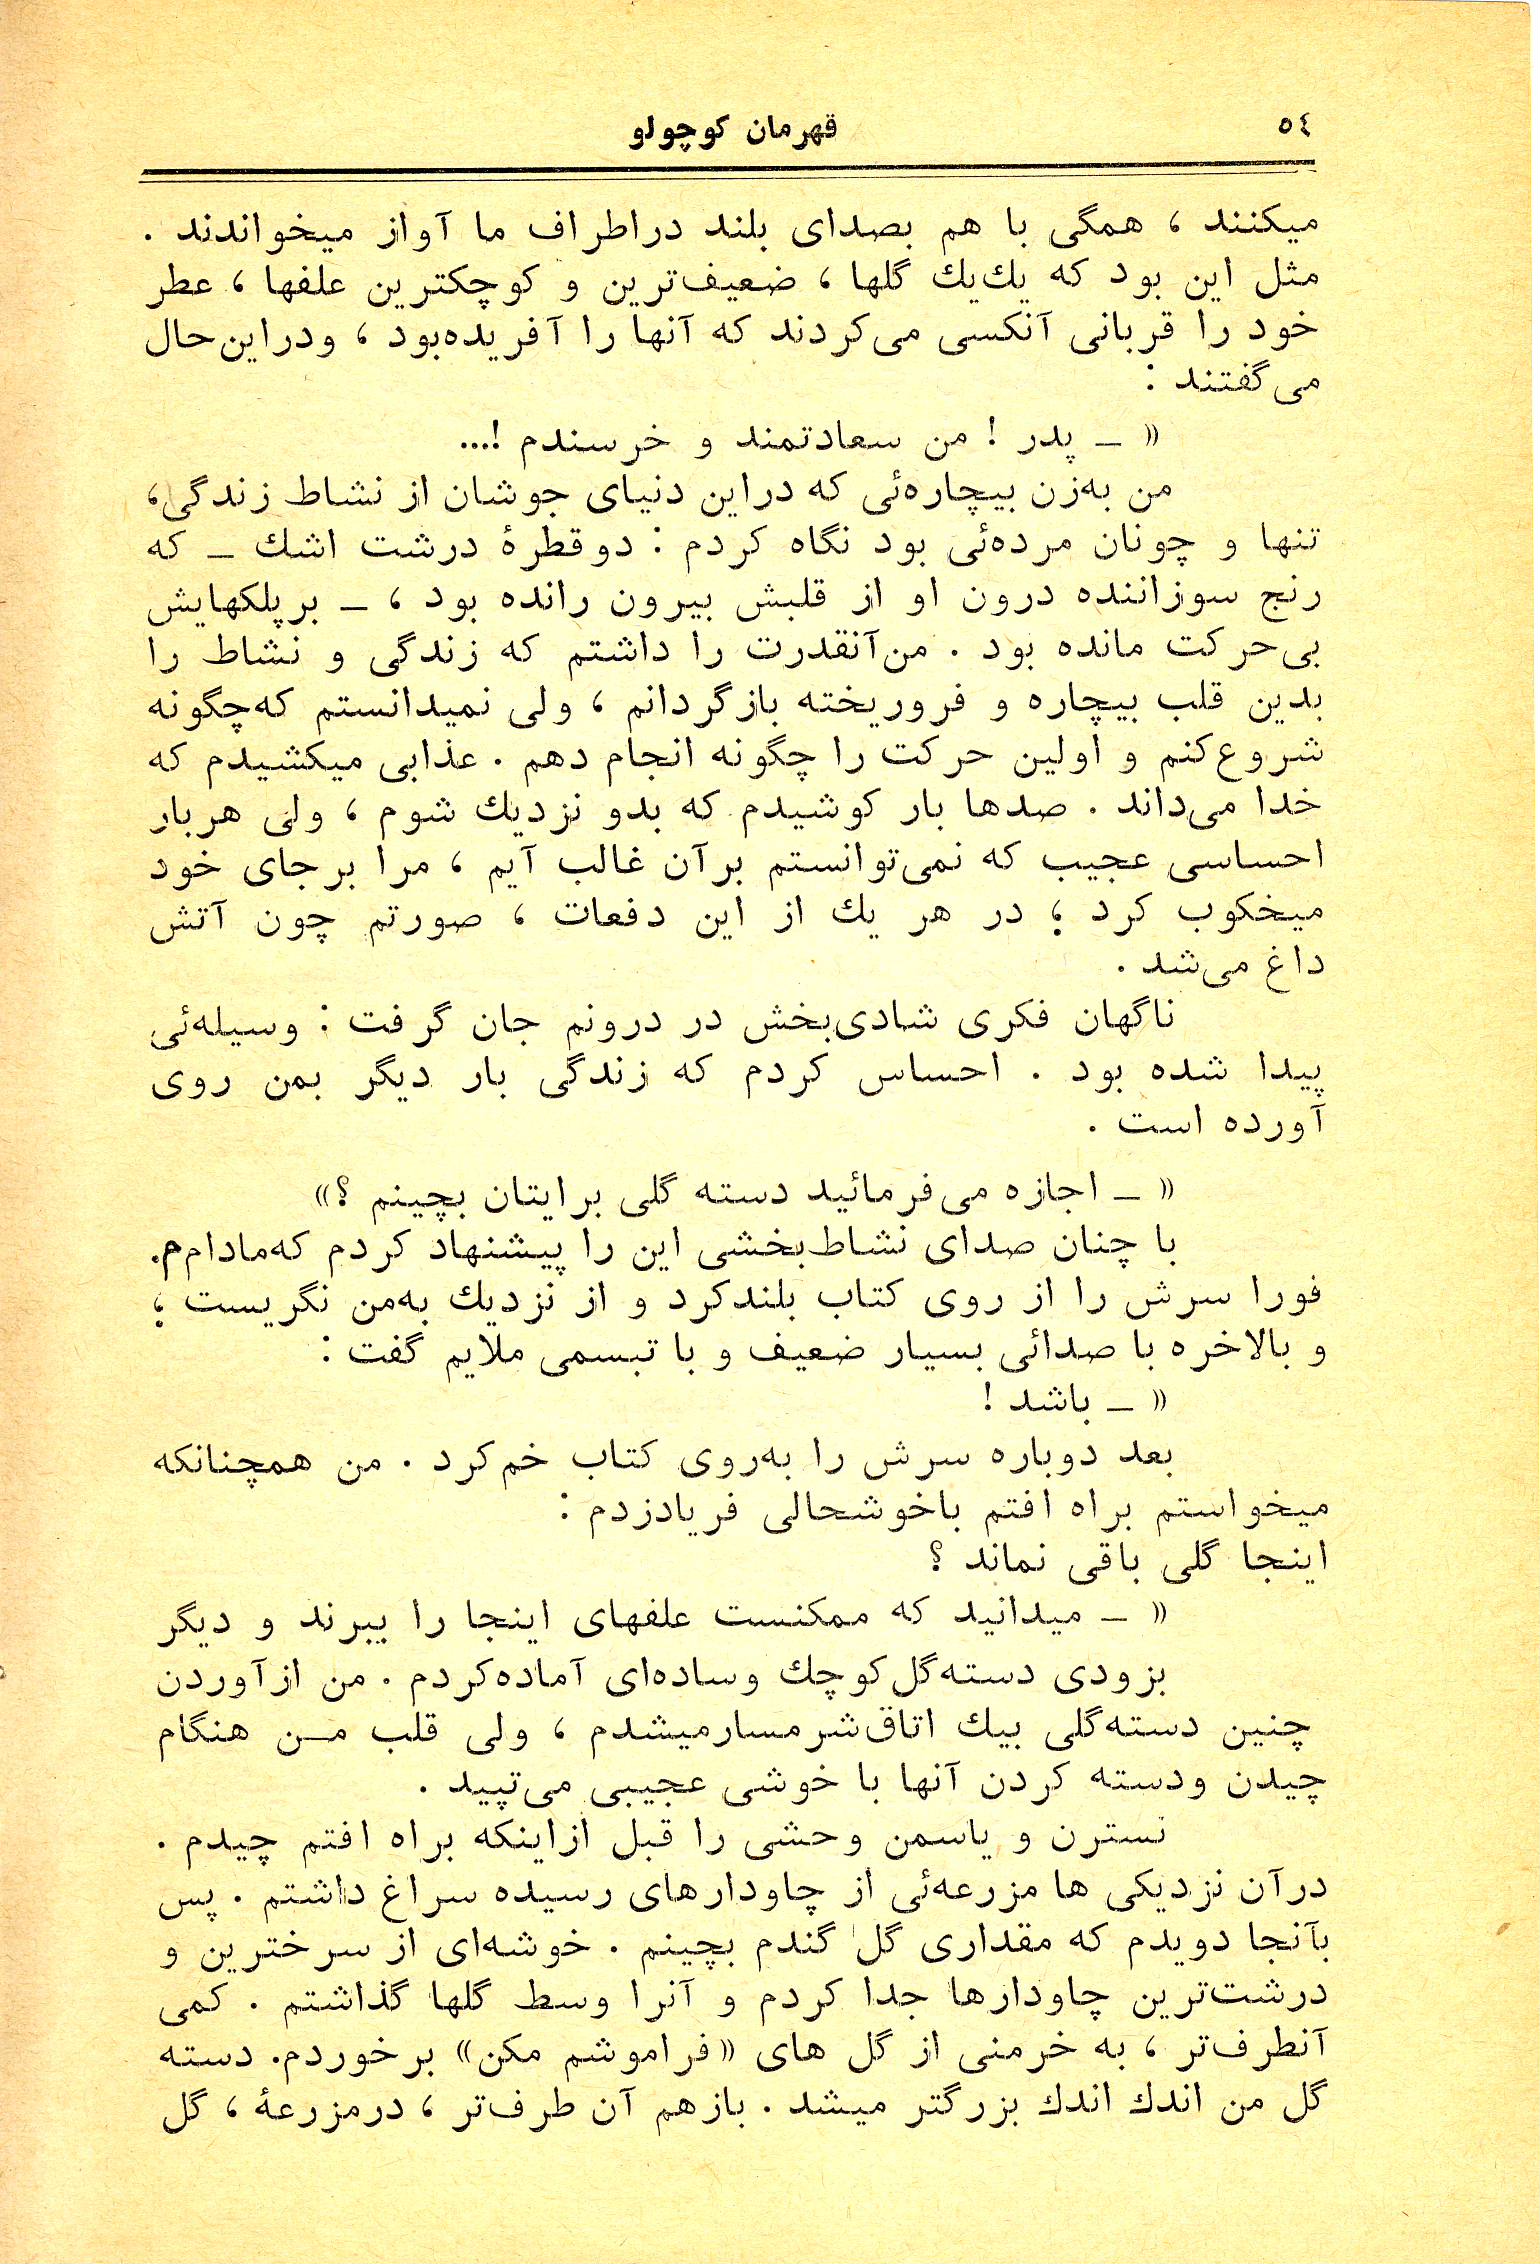 ٥٤
قهرمان کوچولو
میکنند ، همگی با هم بصدای بلند دراطراف ما آواز میخواندند .
مثل این بود که یك‌یك گلها ، ضعیف‌ترین و کوچکترین علفها ، عطر
خود را قربانی آنکسی می‌کردند که آنها را آفریده‌بود ، ودراین‌حال
می‌گفتند :
« ـ پدر ! من سعادتمند و خرسندم !...
من به‌زن بیچاره‌ئی که دراین دنیای جوشان از نشاط زندگی،
تنها و چونان مرده‌ئی بود نگاه کردم : دوقطرهٔ درشت اشك ـ که
رنج سوزاننده درون او از قلبش بیرون رانده بود ، ـ برپلکهایش
بی‌حرکت مانده بود . من‌آنقدرت را داشتم که زندگی و نشاط را
بدین قلب بیچاره و فروریخته بازگردانم ، ولی نمیدانستم که‌چگونه
شروع‌کنم و اولین حرکت را چگونه انجام دهم . عذابی میکشیدم که
خدا می‌داند . صدها بار کوشیدم که بدو نزدیك شوم ، ولی هربار
احساسی عجیب که نمی‌توانستم برآن غالب آیم ، مرا برجای خود
میخکوب کرد ؛ در هر یك از این دفعات ، صورتم چون آتش
داغ می‌شد .
ناگهان فکری شادی‌بخش در درونم جان گرفت : وسیله‌ئی
پیدا شده بود . احساس کردم که زندگی بار دیگر بمن روی
آورده است .
« ـ اجازه می‌فرمائید دسته گلی برایتان بچینم ؟»
با چنان صدای نشاط‌بخشی این را پیشنهاد کردم که‌مادام‌م.
فورا سرش را از روی کتاب بلندکرد و از نزدیك به‌من نگریست ؛
و بالاخره با صدائی بسیار ضعیف و با تبسمی ملایم گفت :
« ـ باشد !
بعد دوباره سرش را به‌روی کتاب خم‌کرد . من همچنانکه
میخواستم براه افتم باخوشحالی فریادزدم :
اینجا گلی باقی نماند ؟
« ـ میدانید که ممکنست علفهای اینجا را ببرند و دیگر
بزودی دسته‌گل‌کوچك وساده‌ای آماده‌کردم . من ازآوردن
چنین دسته‌گلی بیك اتاق‌شرمسارمیشدم ، ولی قلب مـن هنگام
چیدن ودسته کردن آنها با خوشی عجیبی می‌تپید .
نسترن و یاسمن وحشی را قبل ازاینکه براه افتم چیدم .
درآن نزدیکی ها مزرعه‌ئی از چاودارهای رسیده سراغ داشتم . پس
بآنجا دویدم که مقداری گل گندم بچینم . خوشه‌ای از سرخترین و
درشت‌ترین چاودارها جدا کردم و آنرا وسط گلها گذاشتم . کمی
آنطرف‌تر ، به خرمنی از گل های «فراموشم مکن» برخوردم. دسته
گل من اندك اندك بزرگتر میشد . بازهم آن طرف‌تر ، درمزرعهٔ ، گل